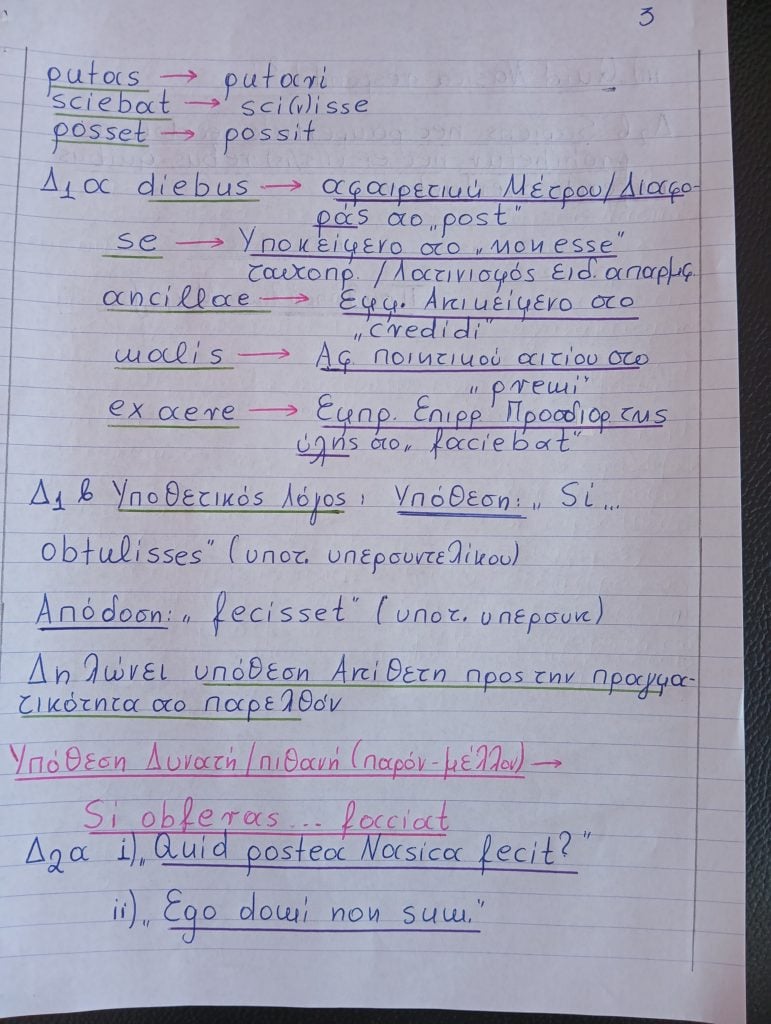 3
putas → putari
sciebat → sci(v)isse
posset → possit
Δ1α diebus → αφαιρετική Μέτρου/Διαφο-
ράς στο „post"
se → Υποκείμενο στο „non esse"
ταυτοπρ. / Λατινισμός ειδ. απαρμφ.
ancillae → Εμμ. Αντικείμενο στο
„credidi"
malis → Αφ ποιητικού αιτίου στο
„premi"
ex aere → Εμπρ. Επιρρ Προσδιορ της
ύλης στο „faciebat"
Δ1 β Υποθετικός λόγος: Υπόθεση: „Si...
obtulisses" (υποτ. υπερσυντελίκου)
Απόδοση: „fecisset" (υποτ. υπερσυντ)
Δηλώνει υπόθεση Αντίθετη προς την πραγμα-
τικότητα στο παρελθόν
Υπόθεση Δυνατή/πιθανή (παρόν-μέλλον) →
Si obferas... facciat
Δ2α i) „Quid postea Nasica fecit?"
ii) „Ego domi non sum."